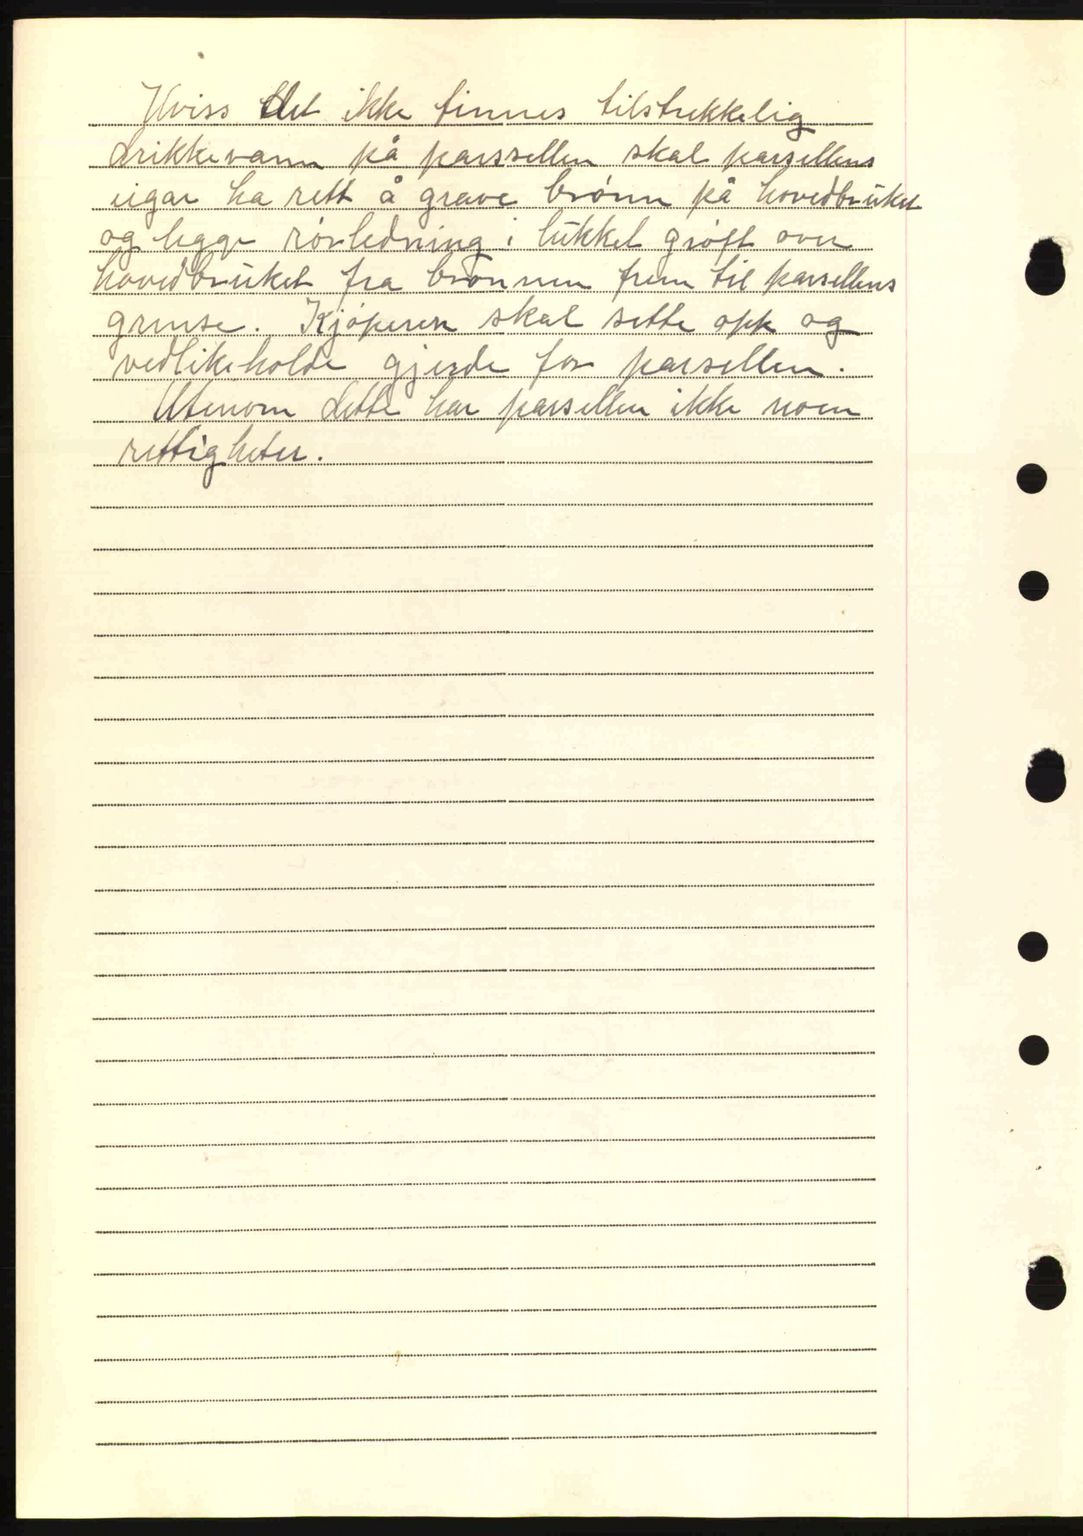 Hviss det ikke finnes tilstrekkelig
drikkevann på parssellen skal parsellens
eigar ha rett å grave brønn på hovedbruket
og legge rørledning i lukket grøft over
hovedbruket fra brønnen frem til parsellens
grense. Kjøperen skal sette opp og
vedlikeholde gjerde for parsellen.
Utenom dette har parsellen ikke noen
rettigheter.